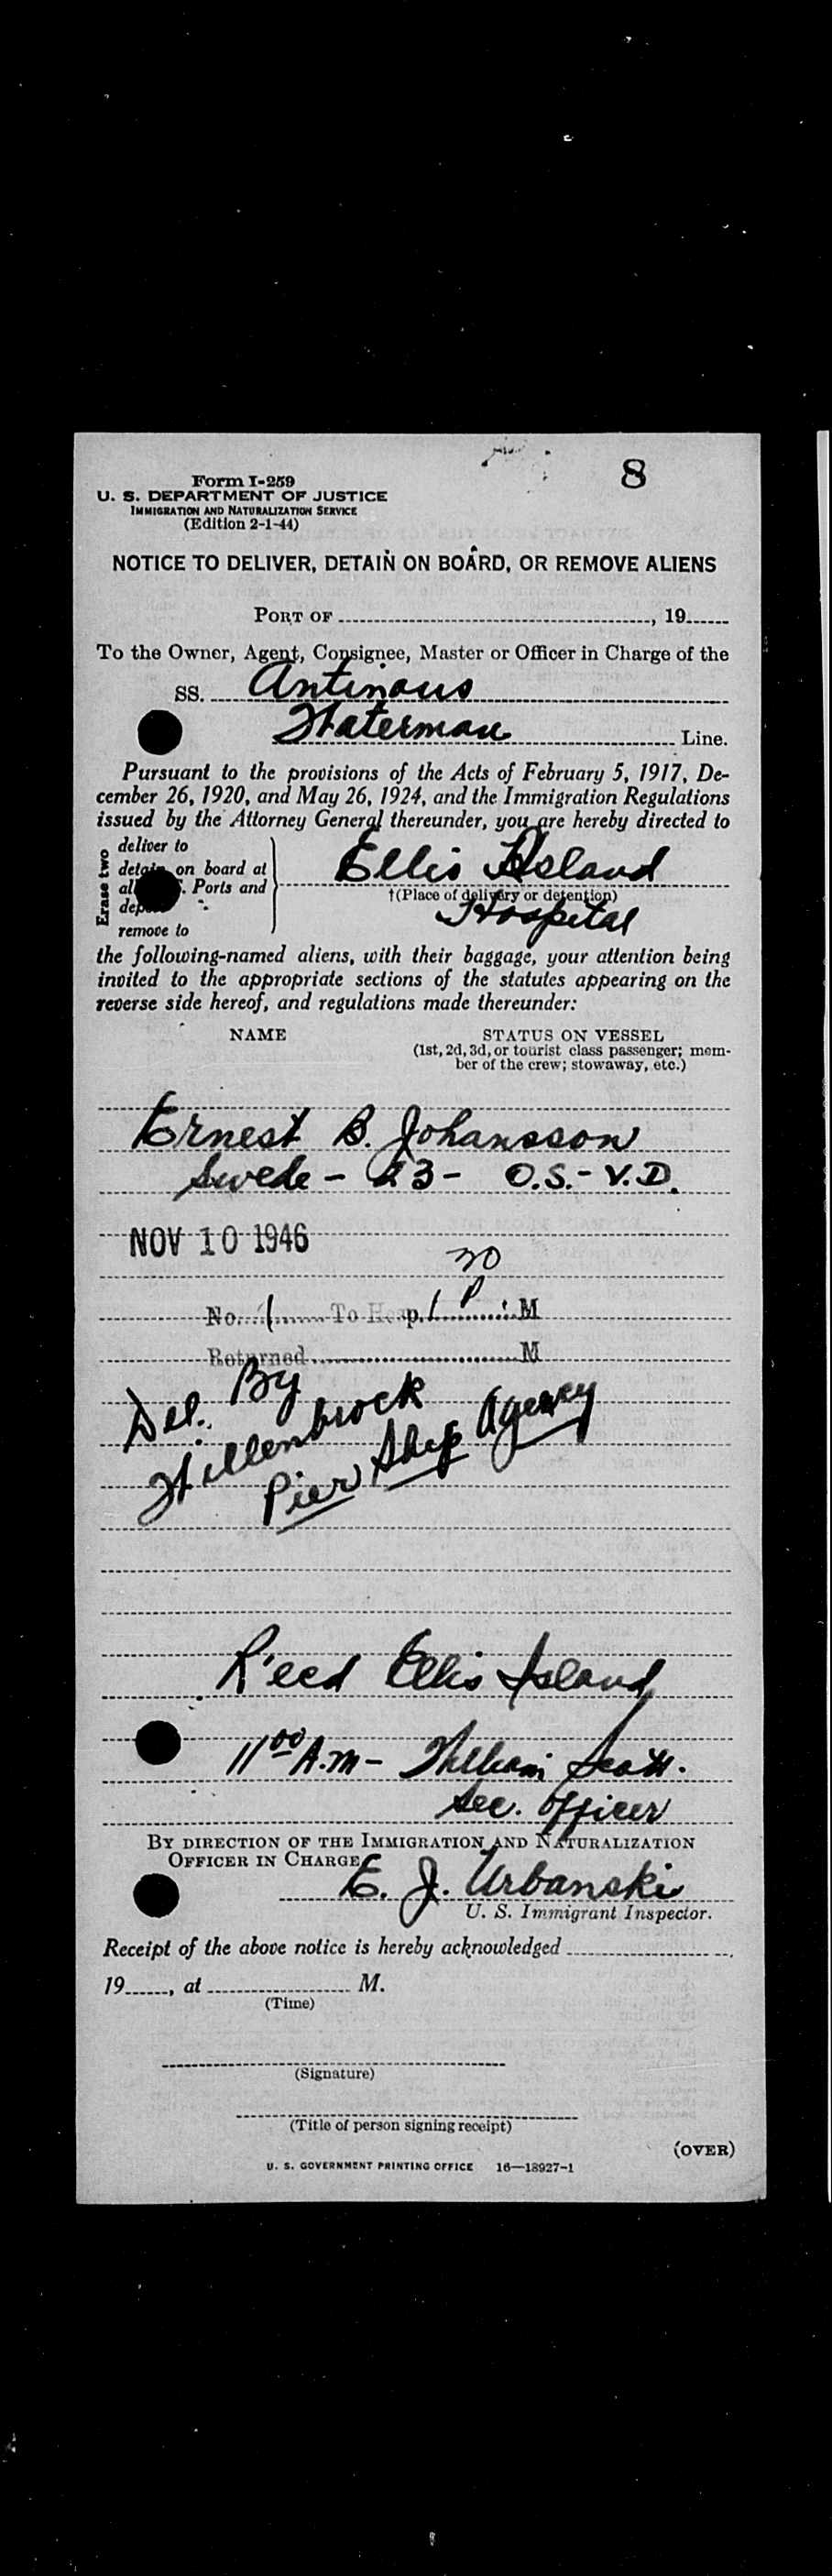 8
Form I-259
U. S. DEPARTMENT OF JUSTICE
IMMIGRATION AND NATURALIZATION SERVICE
(Edition 2-1-44)
NOTICE TO DELIVER, DETAIN ON BOARD, OR REMOVE ALIENS
PORT OF ........................................, 19......
To the Owner, Agent, Consignee, Master or Officer in Charge of the
SS. Antinous
Waterman Line.
Pursuant to the provisions of the Acts of February 5, 1917, De-
cember 26, 1920, and May 26, 1924, and the Immigration Regulations
issued by the Attorney General thereunder, you are hereby directed to
Erase two
deliver to
detain on board at
Ports and
remove to
Ellis Island
†(Place of delivery or detention)
Hospital
the following-named aliens, with their baggage, your attention being
invited to the appropriate sections of the statutes appearing on the
reverse side hereof, and regulations made thereunder:
NAME STATUS ON VESSEL
(1st, 2d, 3d, or tourist class passenger; mem-
ber of the crew; stowaway, etc.)
Ernest B. Johansson
Swede - 23 - O.S. - V.D.
NOV 10 1946
No. 1 To Hosp. 1 30 P M
Returned M
Del. By
Hillenbrock
Pier Ship Agency
R'ecd Ellis Island
11 00 A.M - William Scott.
Sec. Officer
BY DIRECTION OF THE IMMIGRATION AND NATURALIZATION
OFFICER IN CHARGE
E. J. Urbanski
U. S. Immigrant Inspector.
Receipt of the above notice is hereby acknowledged ....................,
19......, at .................... M.
(Time)
(Signature)
(Title of person signing receipt)
(OVER)
U. S. GOVERNMENT PRINTING OFFICE 16—18927-1